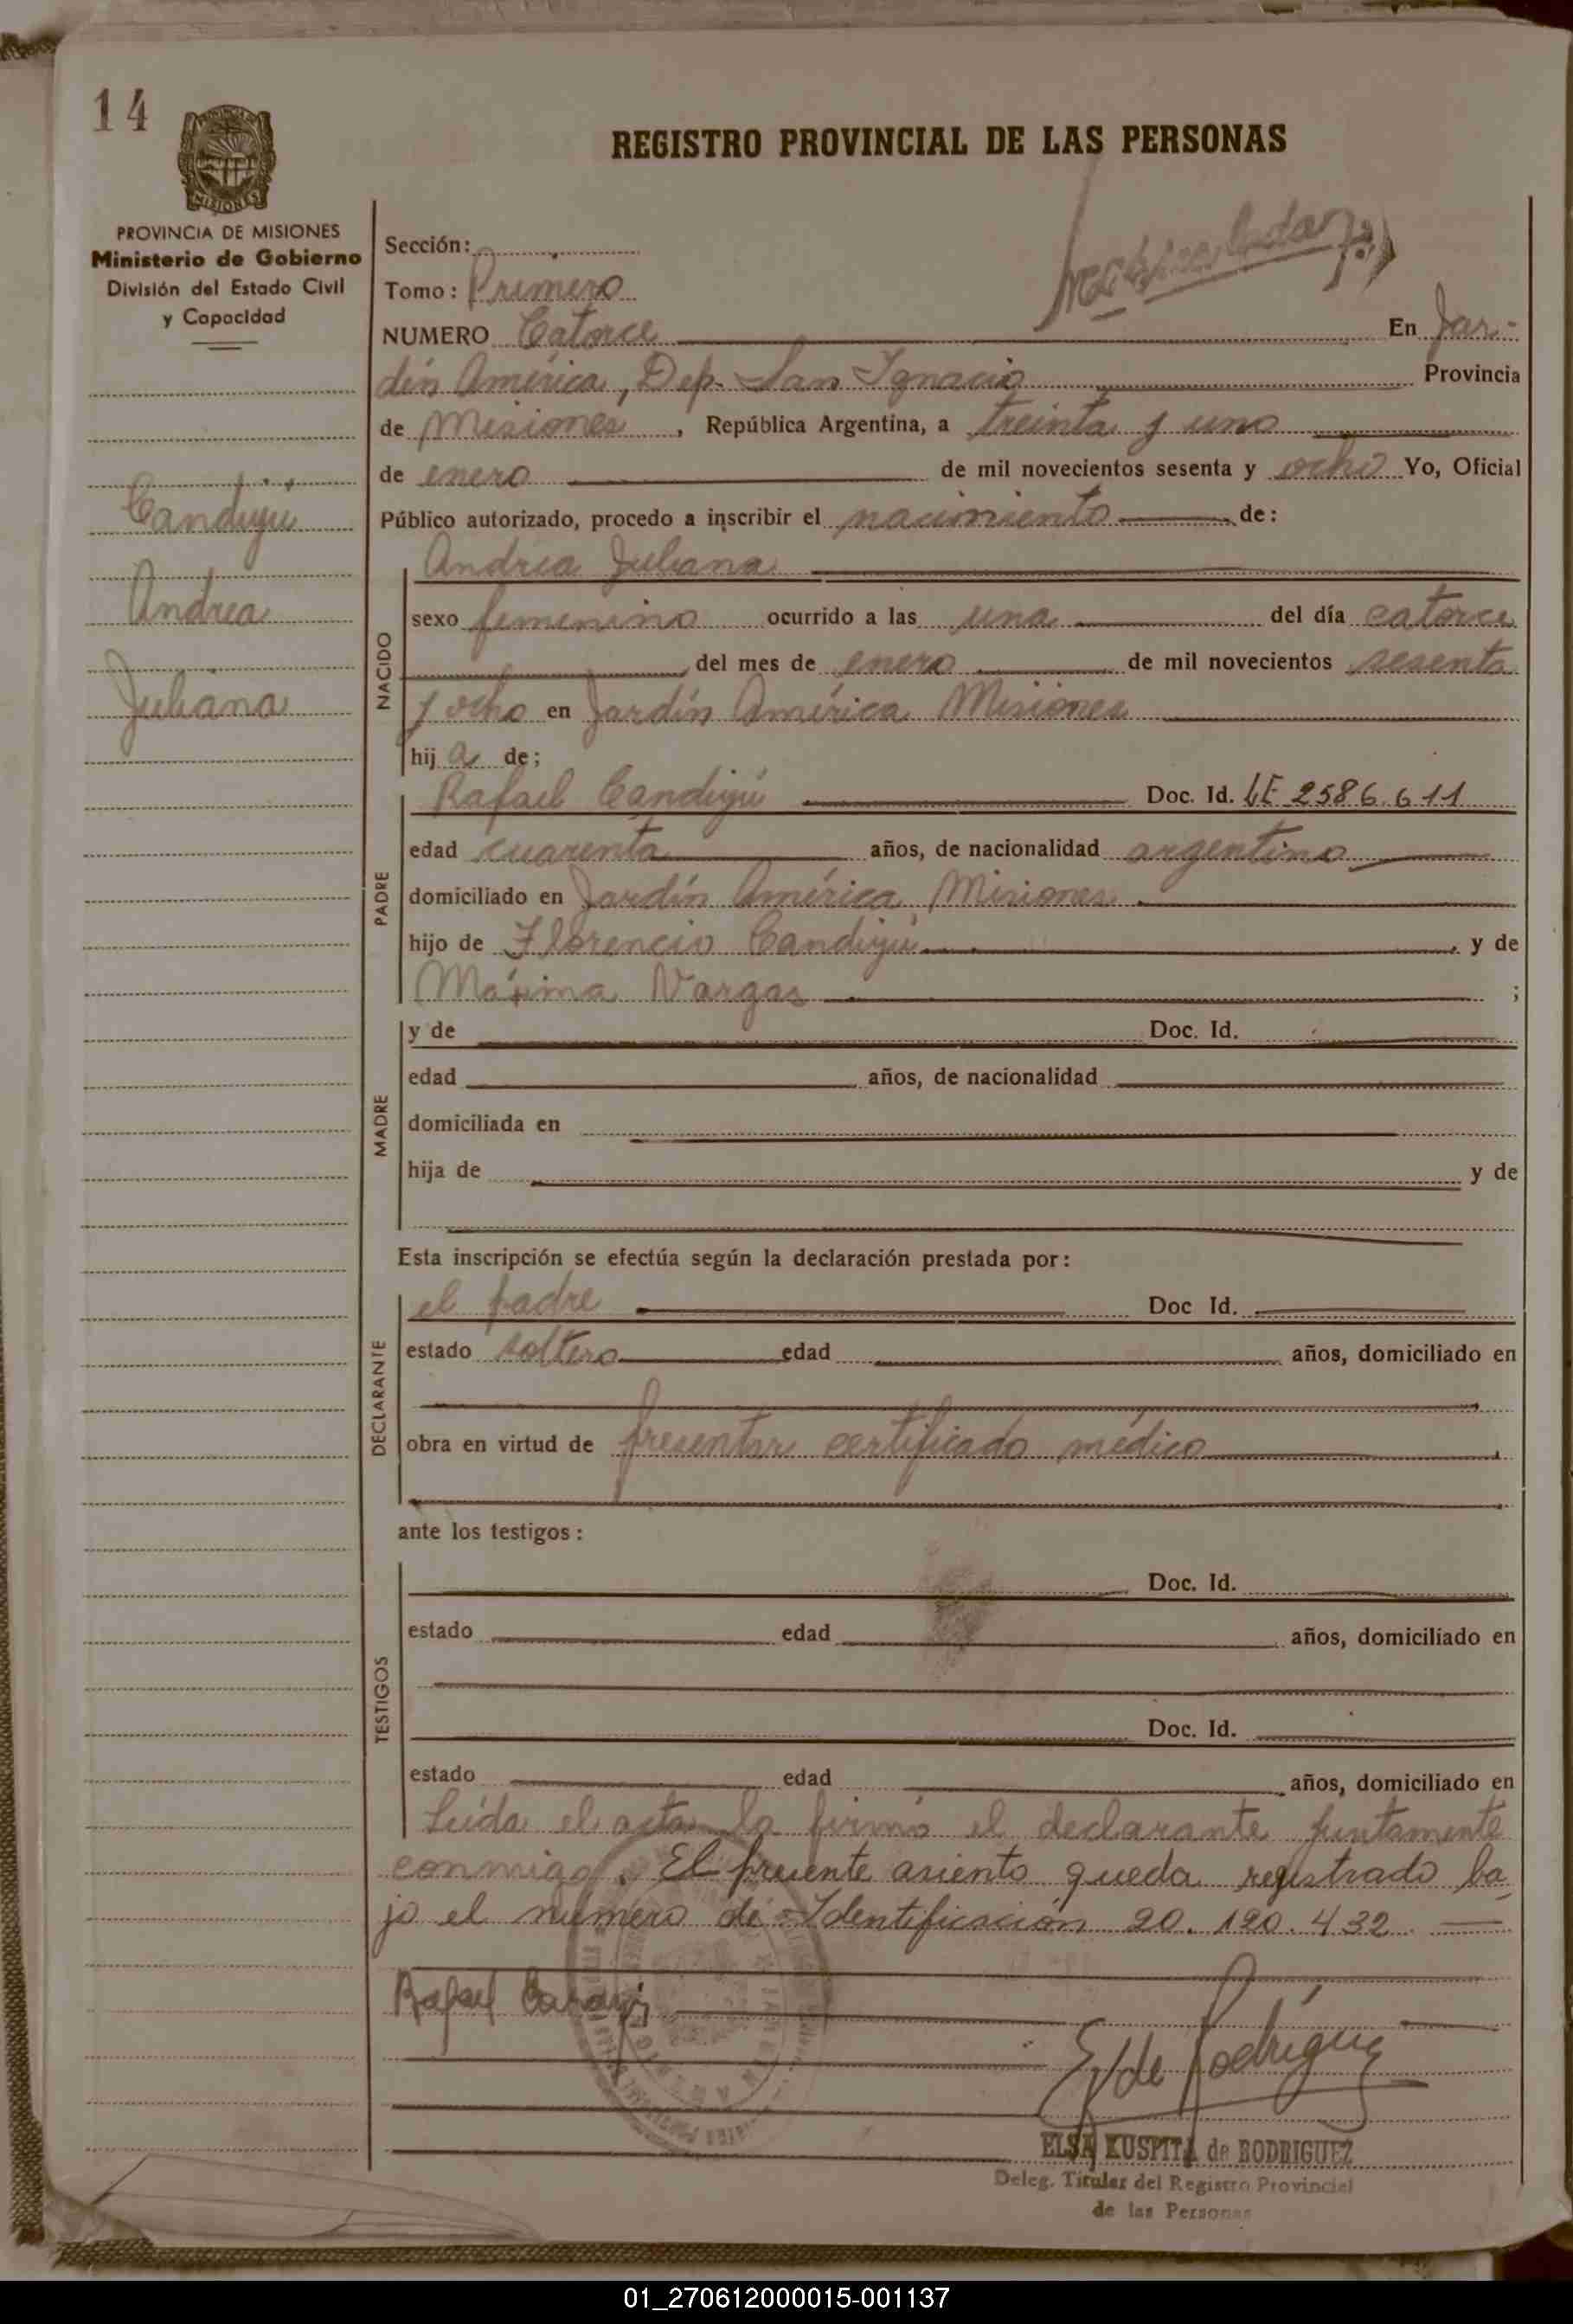 14
REGISTRO PROVINCIAL DE LAS PERSONAS
MISIONES
PROVINCIA DE MISIONES
Ministerio de Gobierno
División del Estado Civil
y Capacidad
Candujú
Andrea
Juliana
Sección:
Tomo: Primero
NUMERO Catorce En Jar-
dín América, Dep. San Ignacio Provincia
de Misiones, República Argentina, a treinta y uno
de enero de mil novecientos sesenta y ocho Yo, Oficial
Público autorizado, procedo a inscribir el nacimiento de:
Andrea Juliana
NACIDO
sexo femenino ocurrido a las una del día catorce
del mes de enero de mil novecientos sesenta
y ocho en Jardín América Misiones
hija de;
PADRE
Rafael Candujú Doc. Id. LE 2586.611
edad cuarenta años, de nacionalidad argentino
domiciliado en Jardín América Misiones
hijo de Florencio Candujú, y de
Máxima Vargas ;
MADRE
y de Doc. Id.
edad años, de nacionalidad
domiciliada en
hija de y de
Esta inscripción se efectúa según la declaración prestada por:
DECLARANTE
el padre Doc Id.
estado soltero edad años, domiciliado en
obra en virtud de presentar certificado médico
ante los testigos:
TESTIGOS
Doc. Id.
estado edad años, domiciliado en
Doc. Id.
estado edad años, domiciliado en
Leída el acta la firmó el declarante juntamente
conmigo. El presente asiento queda registrado ba-
jo el número de Identificación 20.120.432
Rafael
E de Rodríguez
ELSA KUSPITA de RODRIGUEZ
Deleg. Titular del Registro Provincial
de las Personas
01_270612000015-001137